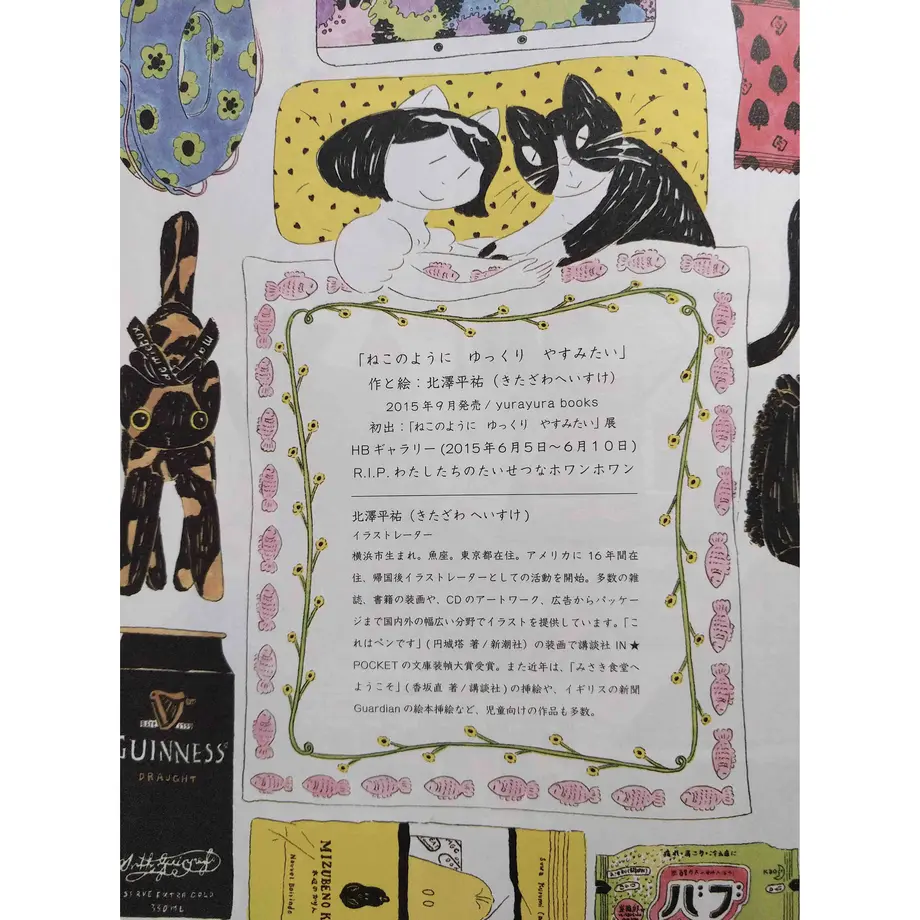 「ねこのように　ゆっくり　やすみたい」
作と絵：北澤平祐（きたざわへいすけ）
2015年9月発売/ yurayura books
初出：「ねこのように　ゆっくり　やすみたい」展
HBギャラリー(2015年6月5日〜6月10日)
R.I.P.わたしたちのたいせつなホワンホワン
北澤平祐（きたざわ へいすけ)
イラストレーター
横浜市生まれ。魚座。東京都在住。アメリカに16年間在
住、帰国後イラストレーターとしての活動を開始。多数の雑
誌、書籍の装画や、CDのアートワーク、広告からパッケー
ジまで国内外の幅広い分野でイラストを提供しています。「こ
れはペンです」(円城塔 著/新潮社）の装画で講談社 IN★
POCKETの文庫装幀大賞受賞。また近年は、「みさき食堂へ
ようこそ」(香坂直 著/講談社)の挿絵や、イギリスの新聞
Guardianの絵本挿絵など、児童向けの作品も多数。
GUINNESS
DRAUGHT
SERVE EXTRA COLD
350ML
MIZUBENO K
Kao
バブ